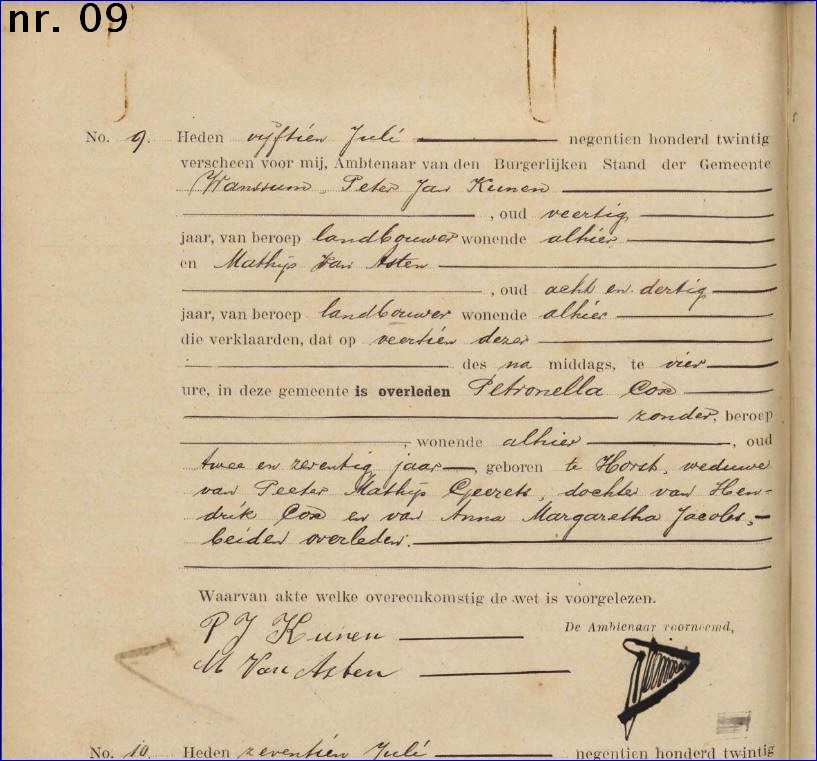 nr. 09
No. 9. Heden vijftien Juli negentien honderd twintig
verscheen voor mij, Ambtenaar van den Burgerlijken Stand der Gemeente
Wanssum, Peter Jan Kunen
, oud veertig
jaar, van beroep landbouwer wonende alhier
en Mathijs van Asten
, oud acht en dertig
jaar, van beroep landbouwer wonende alhier
die verklaarden, dat op veertien dezer
des na middags, te vier
ure, in deze gemeente is overleden Petronella Cox
zonder, beroep
, wonende alhier , oud
twee en zeventig jaar , geboren te Horst, weduwe
van Peeter Mathijs Geerets, dochter van Hen-
drik Cox en van Anna Margaretha Jacobs,
beiden overleden.
Waarvan akte welke overeenkomstig de wet is voorgelezen.
P J Kunen De Ambtenaar voornoemd,
M Van Asten
No. 10. Heden zeventien Juli negentien honderd twintig